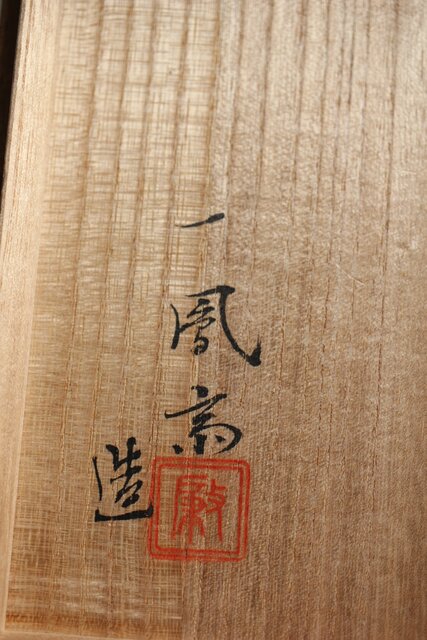 一鳳斎
造